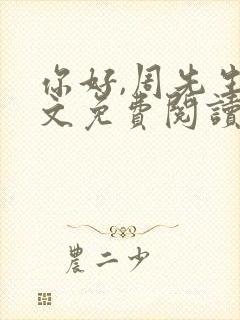 你好,周先生
文免費閱讀
農二少